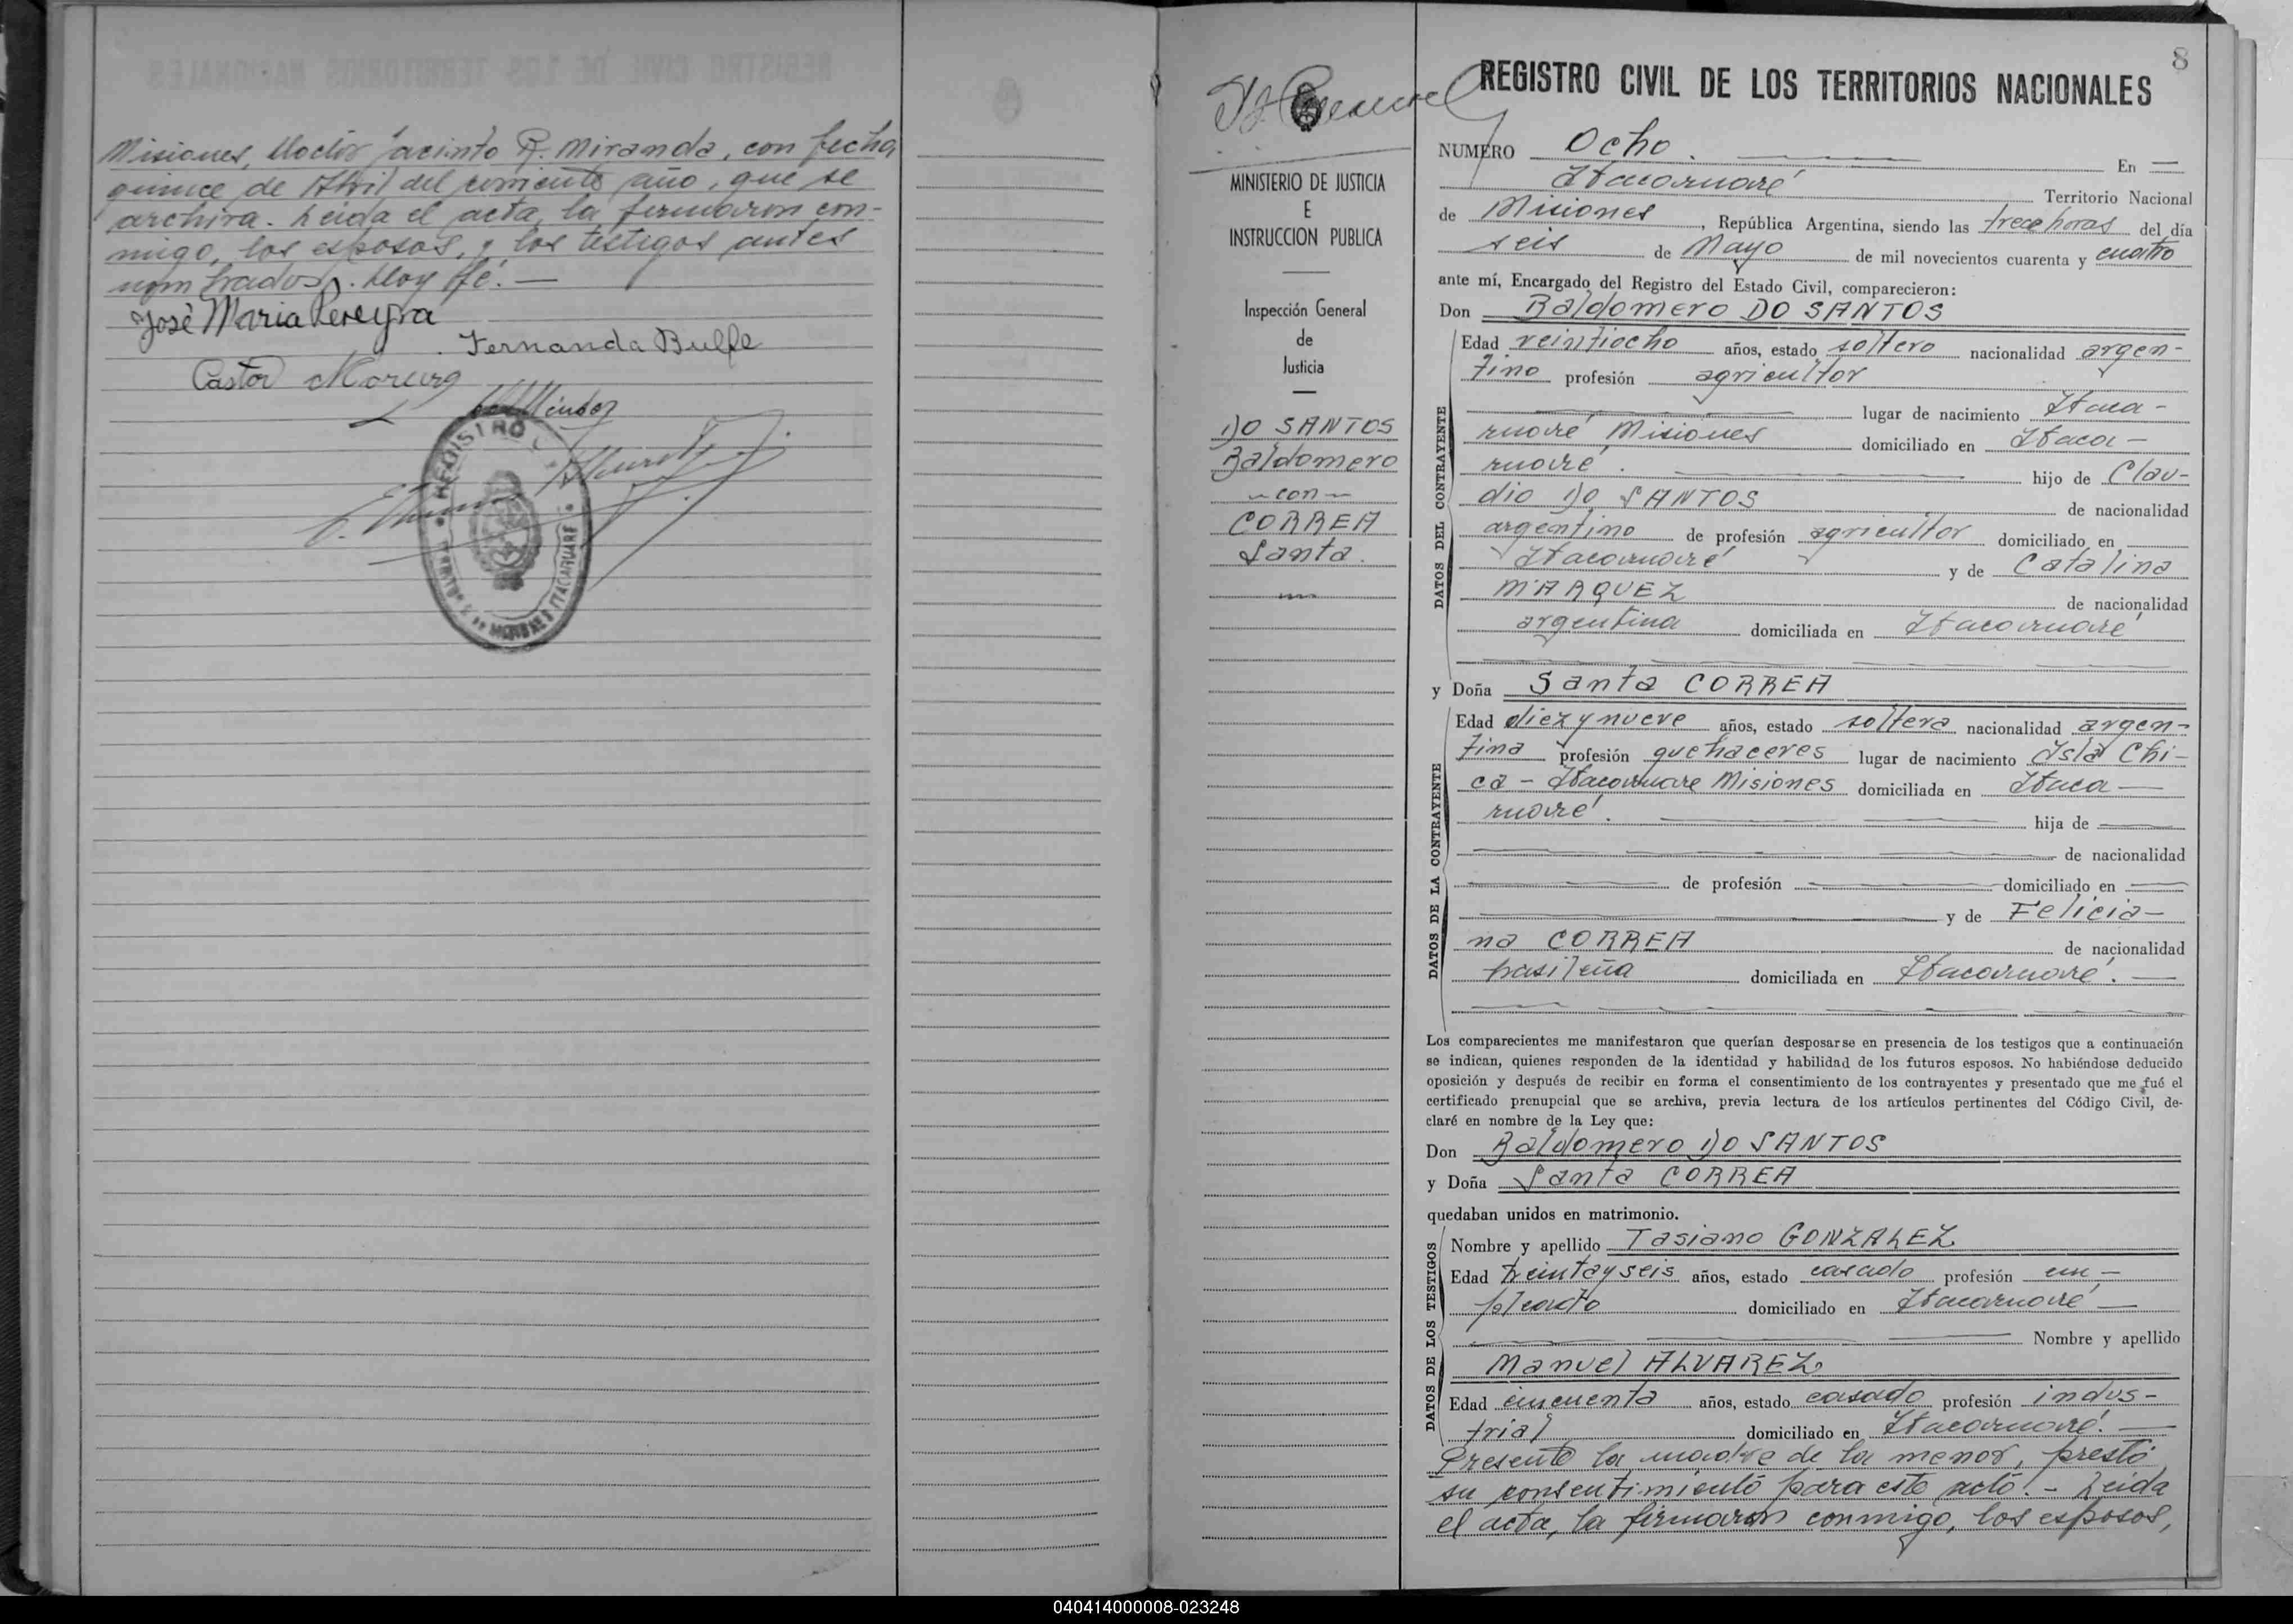 Misiones, Doctor Jacinto R. Miranda, con fecha
quince de Abril del corriente año, que se
archiva. Leida el acta, la firmaron con-
migo, los esposos, y los testigos antes
nombrados. Doy fé. —
José Maria Pereyra
Fernanda Bulfe
Castor
REGISTRO
ITACARUARE
MINISTERIO DE JUSTICIA
E
INSTRUCCION PUBLICA
Inspección General
de
Justicia
DO SANTOS
Baldomero
— con —
CORREA
Santa.
8
REGISTRO CIVIL DE LOS TERRITORIOS NACIONALES
NUMERO Ocho. En
Itacaruaré Territorio Nacional
de Misiones, República Argentina, siendo las trece horas del día
seis de Mayo de mil novecientos cuarenta y cuatro
ante mí, Encargado del Registro del Estado Civil, comparecieron:
Don Baldomero DO SANTOS
DATOS DEL CONTRAYENTE
Edad veintiocho años, estado soltero nacionalidad argen-
tino profesión agricultor
lugar de nacimiento Itaca-
ruaré Misiones domiciliado en Itaca-
ruaré. hijo de Clau-
dio DO SANTOS de nacionalidad
argentino de profesión agricultor domiciliado en
Itacaruaré y de Catalina
MARQUEZ de nacionalidad
argentina domiciliada en Itacaruaré
y Doña Santa CORREA
DATOS DE LA CONTRAYENTE
Edad diez y nueve años, estado soltera nacionalidad argen-
tina profesión quehaceres lugar de nacimiento Isla Chi-
ca - Itacaruare Misiones domiciliada en Itaca-
ruaré. hija de
de nacionalidad
de profesión domiciliado en
y de Felicia-
na CORREA de nacionalidad
brasileña domiciliada en Itacaruaré. —
Los comparecientes me manifestaron que querían desposarse en presencia de los testigos que a continuación
se indican, quienes responden de la identidad y habilidad de los futuros esposos. No habiéndose deducido
oposición y después de recibir en forma el consentimiento de los contrayentes y presentado que me fué el
certificado prenupcial que se archiva, previa lectura de los artículos pertinentes del Código Civil, de-
claré en nombre de la Ley que:
Don Baldomero DO SANTOS
y Doña Santa CORREA
quedaban unidos en matrimonio.
DATOS DE LOS TESTIGOS
Nombre y apellido Tasiano GONZALEZ
Edad treinta y seis años, estado casado profesión em-
pleado domiciliado en Itacaruaré —
Nombre y apellido
Manuel ALVAREZ
Edad cincuenta años, estado casado profesión indus-
trial domiciliado en Itacaruaré. —
Presente la madre de la menor, prestó
su consentimiento para este acto. - Leida
el acta, la firmaron conmigo, los esposos,
040414000008-023248